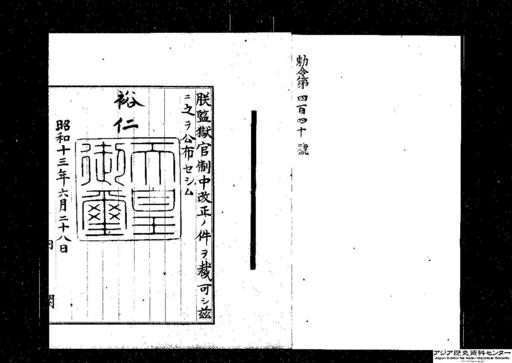 勅令第四百四十號
朕監獄官制中改正ノ件ヲ裁可シ茲
ニ之ヲ公布セシム
裕仁
天皇
御璽
昭和十三年六月二十八日
内閣
アジア歴史資料センター
Japan Center for Asian Historical Records